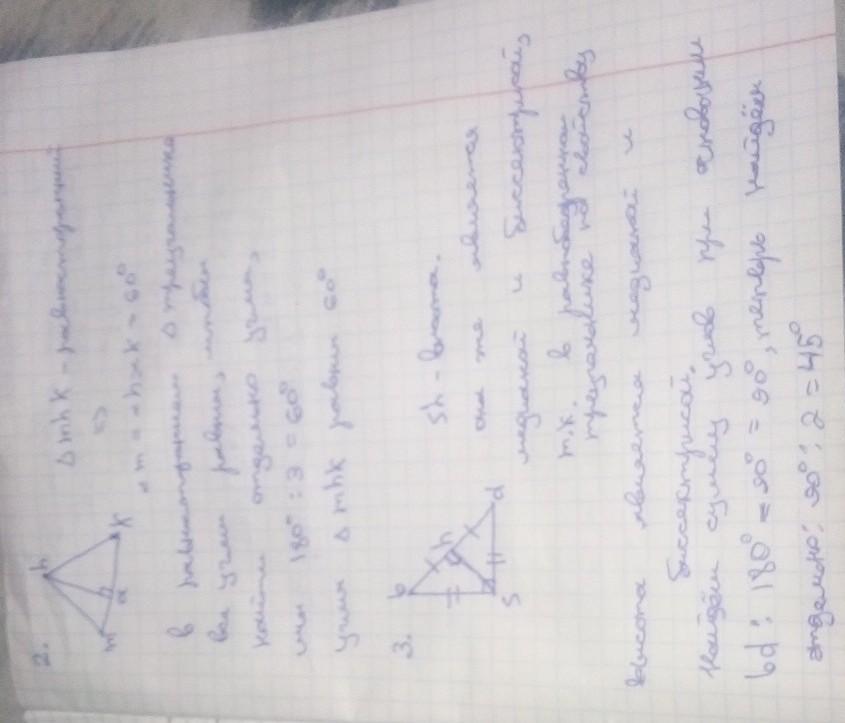 2.
h
m a k
Δ mhk - равносторонний
=>
∠m = ∠h = ∠k = 60°
в равностороннем Δ треугольнике
все углы равны, чтобы
найти отдельно углы,
180° : 3 = 60°
углы Δ mhk равны 60°
3.
b
h
s d
Sh - высота.
она же является
медианой и биссектрисой,
т.к. в равнобедренной
треугольнике по свойству
высота является медианой и
биссектрисой.
Найдём сумму углов при основании
bd : 180° = 90° = 90°, теперь найдём
отдельно: 90° : 2 = 45°